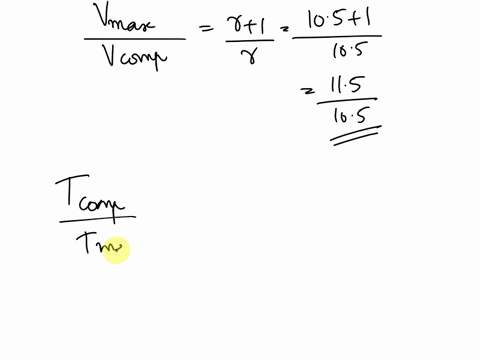 Vmax / Vcomp = r+1 / r = 10.5+1 / 10.5
= 11.5 / 10.5
Tcomp / Tm